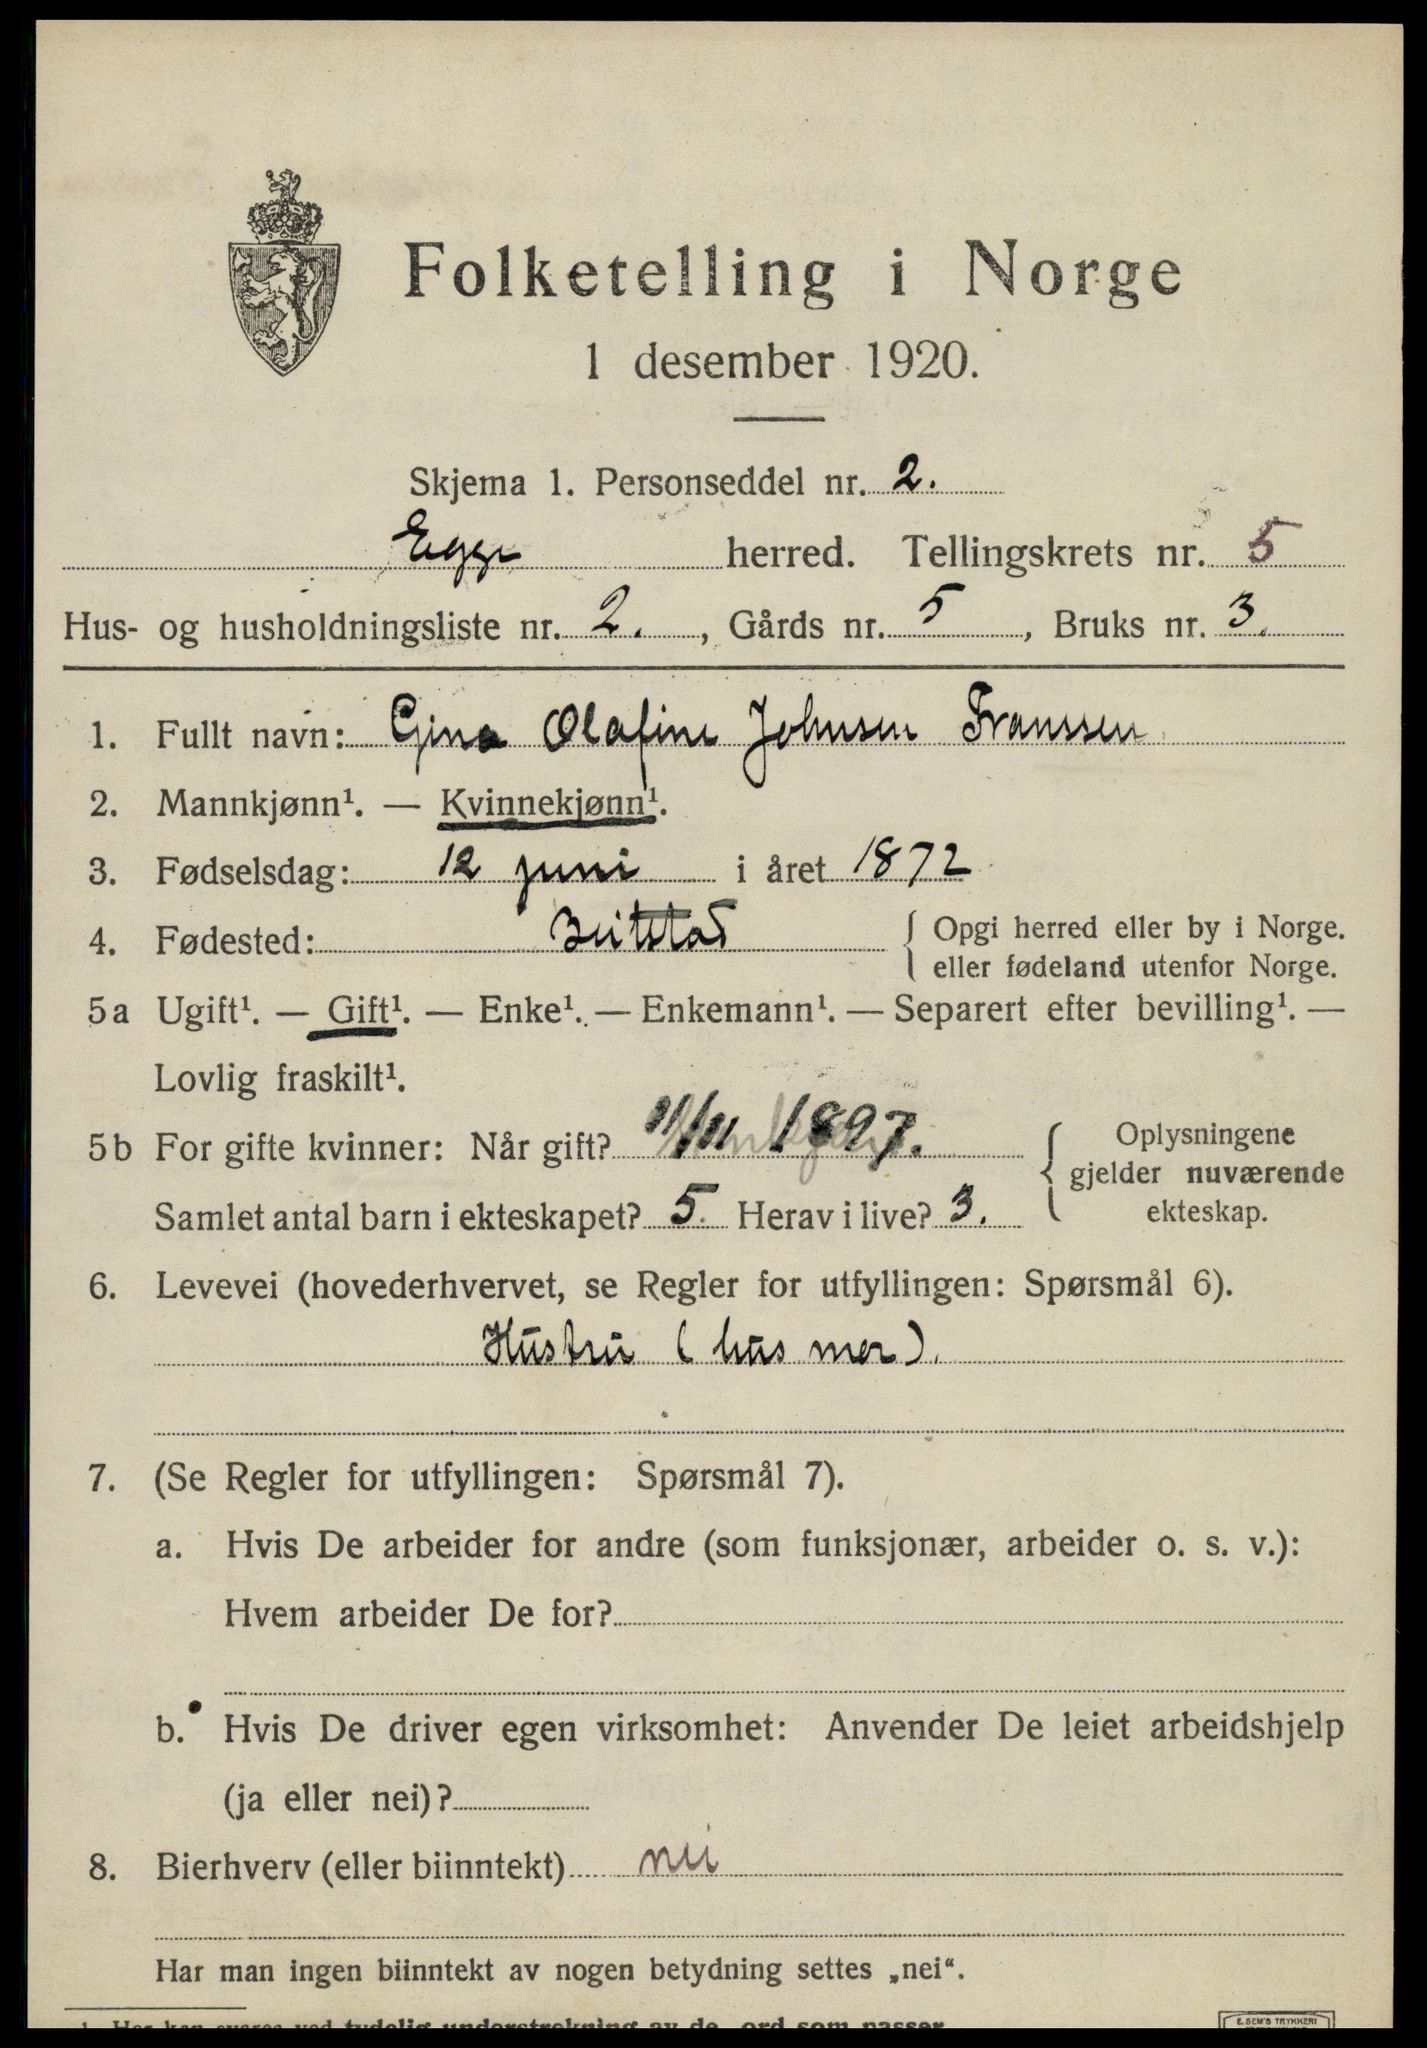 Folketelling i Norge
1 desember 1920.
Skjema 1. Personseddel nr. 2.
Egge herred. Tellingskrets nr. 5
Hus- og husholdningsliste nr. 2. , Gårds nr. 5 , Bruks nr. 3.
1. Fullt navn: Gina Olafine Johnsen Franssen
2. Mannkjønn¹. — Kvinnekjønn¹.
3. Fødselsdag: 12 juni i året 1872
4. Fødested: Beitstad { Opgi herred eller by i Norge.
eller fødeland utenfor Norge.
5a Ugift¹. — Gift¹. — Enke¹. — Enkemann¹. — Separert efter bevilling¹. —
Lovlig fraskilt¹.
5b For gifte kvinner: Når gift? 11/11 1897.
Samlet antal barn i ekteskapet? 5. Herav i live? 3.
Oplysningene
gjelder nuværende
ekteskap.
6. Levevei (hovederhvervet, se Regler for utfyllingen: Spørsmål 6).
Hustru (hus mor).
7. (Se Regler for utfyllingen: Spørsmål 7).
a. Hvis De arbeider for andre (som funksjonær, arbeider o. s. v.):
Hvem arbeider De for?
b. Hvis De driver egen virksomhet: Anvender De leiet arbeidshjelp
(ja eller nei)?
8. Bierhverv (eller biinntekt) nei
Har man ingen biinntekt av nogen betydning settes „nei“.
¹ Her kan svares ved tydelig understrekning av de ord som passer
E. SEM'S TRYKKERI